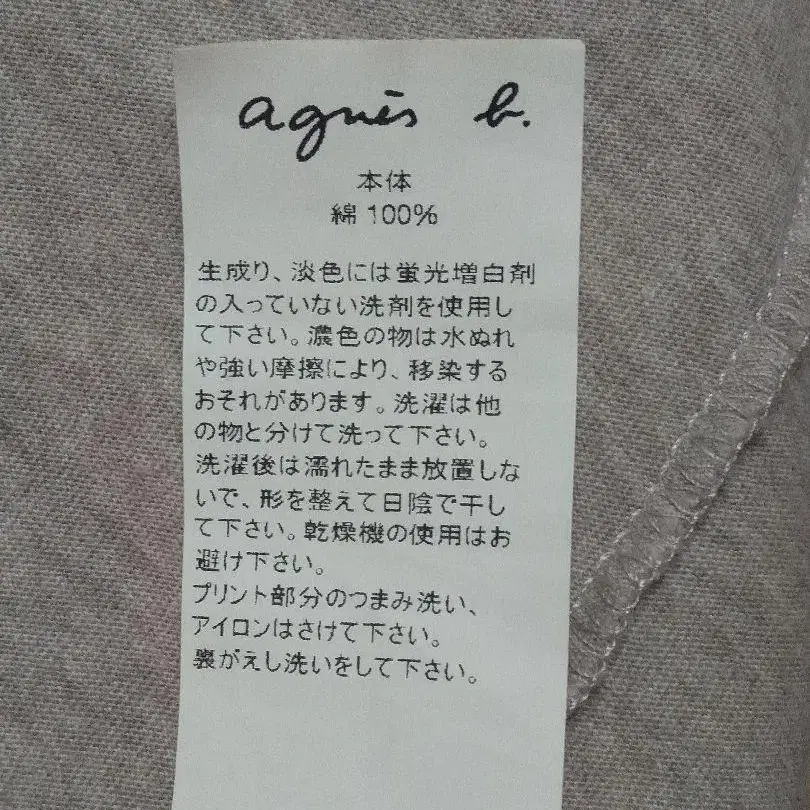 agnès b.
本体
綿 100%
生成り、淡色には蛍光増白剤
の入っていない洗剤を使用し
て下さい。濃色の物は水ぬれ
や強い摩擦により、移染する
おそれがあります。洗濯は他
の物と分けて洗って下さい。
洗濯後は濡れたまま放置しな
いで、形を整えて日陰で干し
て下さい。乾燥機の使用はお
避け下さい。
プリント部分のつまみ洗い、
アイロンはさけて下さい。
裏がえし洗いをして下さい。